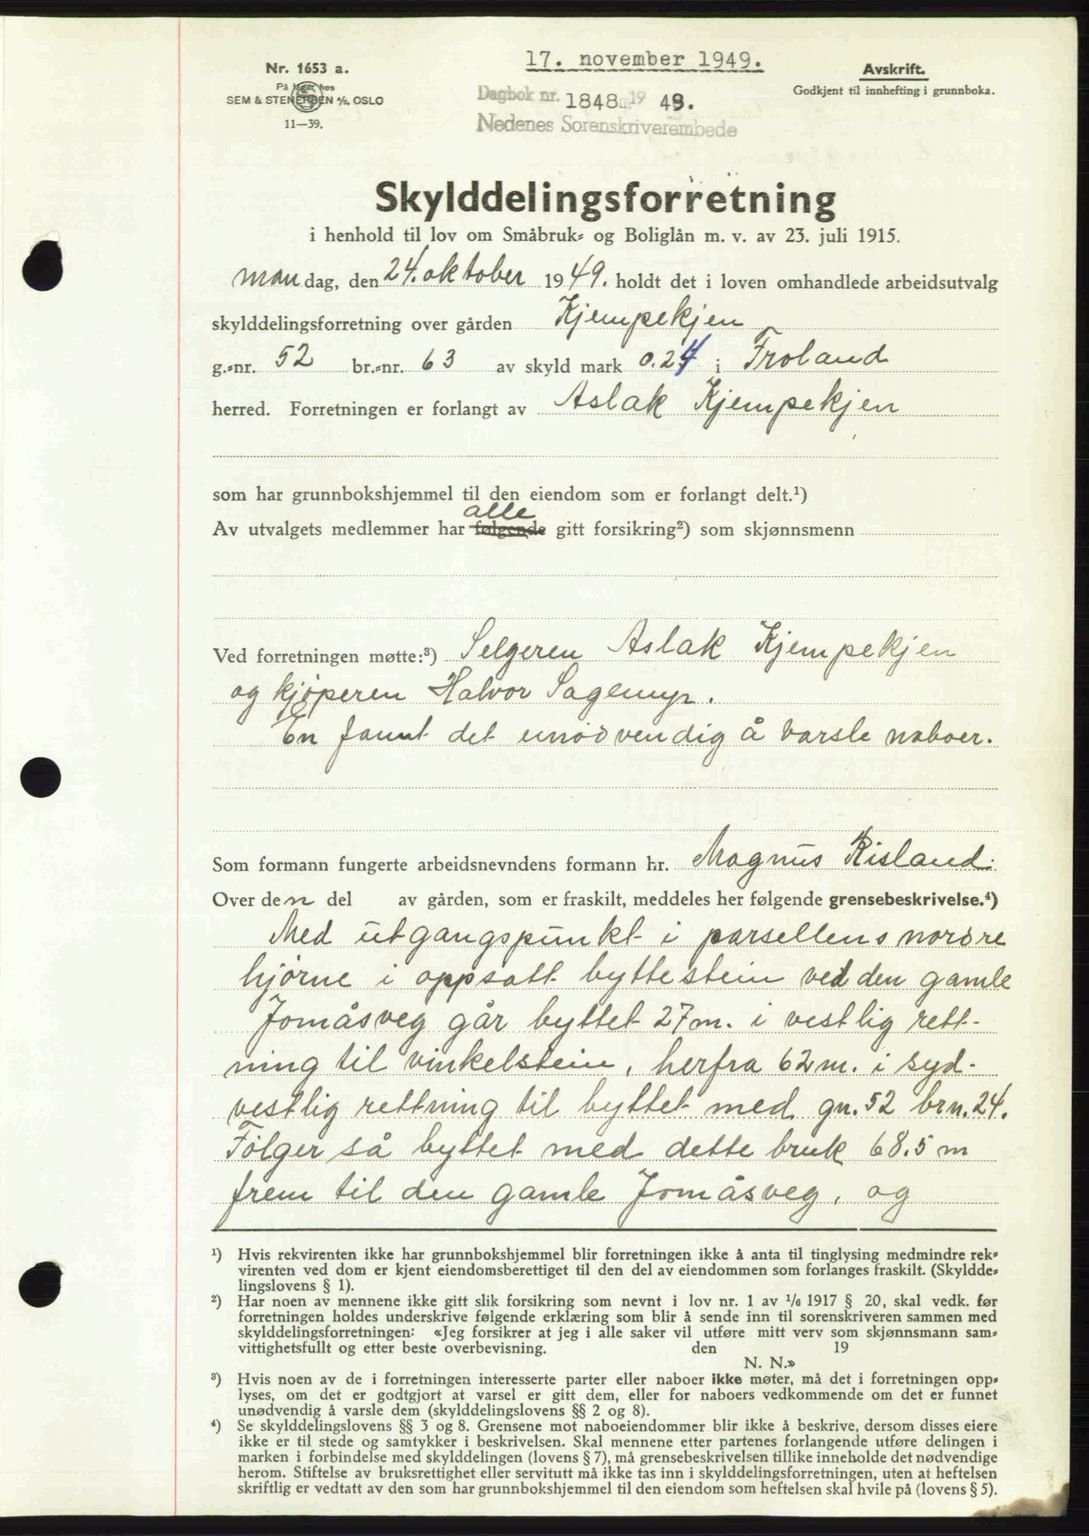 Nr. 1653 a.
På lager hos
SEM & STENERSEN A/S, OSLO
11—39.
17. november 1949.
Dagbok nr. 1848 19 49.
Nedenes Sorenskriverembede
Avskrift.
Godkjent til innhefting i grunnboka.
Skylddelingsforretning
i henhold til lov om Småbruk- og Boliglån m. v. av 23. juli 1915.
mandag, den 24. oktober 1949. holdt det i loven omhandlede arbeidsutvalg
skylddelingsforretning over gården Kjempekjen
g.-nr. 52 br.-nr. 63 av skyld mark 0.24 i Froland
herred. Forretningen er forlangt av Aslak Kjempekjen
som har grunnbokshjemmel til den eiendom som er forlangt delt.¹)
alle
Av utvalgets medlemmer har følgende gitt forsikring²) som skjønnsmenn
Ved forretningen møtte:³) Selgeren Aslak Kjempekjen
og kjøperen Halvor Sagemyr.
En fannt det unødvendig å varsle naboer.
Som formann fungerte arbeidsnevndens formann hr. Magnus Risland.
Over den del av gården, som er fraskilt, meddeles her følgende grensebeskrivelse.⁴)
Med utgangspunkt i parsellens nordre
hjørne i oppsatt byttestein ved den gamle
Jomåsveg går byttet 27 m. i vestlig rett-
ning til vinkelstein, herfra 62 m. i syd-
vestlig rettning til byttet med gn. 52 brn. 24.
Følger så byttet med dette bruk 68.5 m
frem til den gamle Jomåsveg, og
¹) Hvis rekvirenten ikke har grunnbokshjemmel blir forretningen ikke å anta til tinglysing medmindre rek-
virenten ved dom er kjent eiendomsberettiget til den del av eiendommen som forlanges fraskilt. (Skyldde-
lingslovens § 1).
²) Har noen av mennene ikke gitt slik forsikring som nevnt i lov nr. 1 av 1/6 1917 § 20, skal vedk. før
forretningen holdes underskrive følgende erklæring som blir å sende inn til sorenskriveren sammen med
skylddelingsforretningen: «Jeg forsikrer at jeg i alle saker vil utføre mitt verv som skjønnsmann sam-
vittighetsfullt og etter beste overbevisning. den 19
N. N.»
³) Hvis noen av de i forretningen interesserte parter eller naboer ikke møter, må det i forretningen opp-
lyses, om det er godtgjort at varsel er gitt dem, eller for naboers vedkommende om det er funnet
unødvendig å varsle dem (skylddelingslovens §§ 2 og 8).
⁴) Se skylddelingslovens §§ 3 og 8. Grensene mot naboeiendommer blir ikke å beskrive, dersom disses eiere
ikke er til stede og samtykker i beskrivelsen. Skal mennene etter partenes forlangende utføre delingen i
marken i forbindelse med skylddelingen (lovens § 7), må grensebeskrivelsen tillike inneholde det nødvendige
herom. Stiftelse av bruksrettighet eller servitutt må ikke tas inn i skylddelingsforretningen, uten at heftelsen
skriftlig er vedtatt av den som har grunnbokshjemmel til den eiendom som heftelsen skal hvile på (lovens § 5).